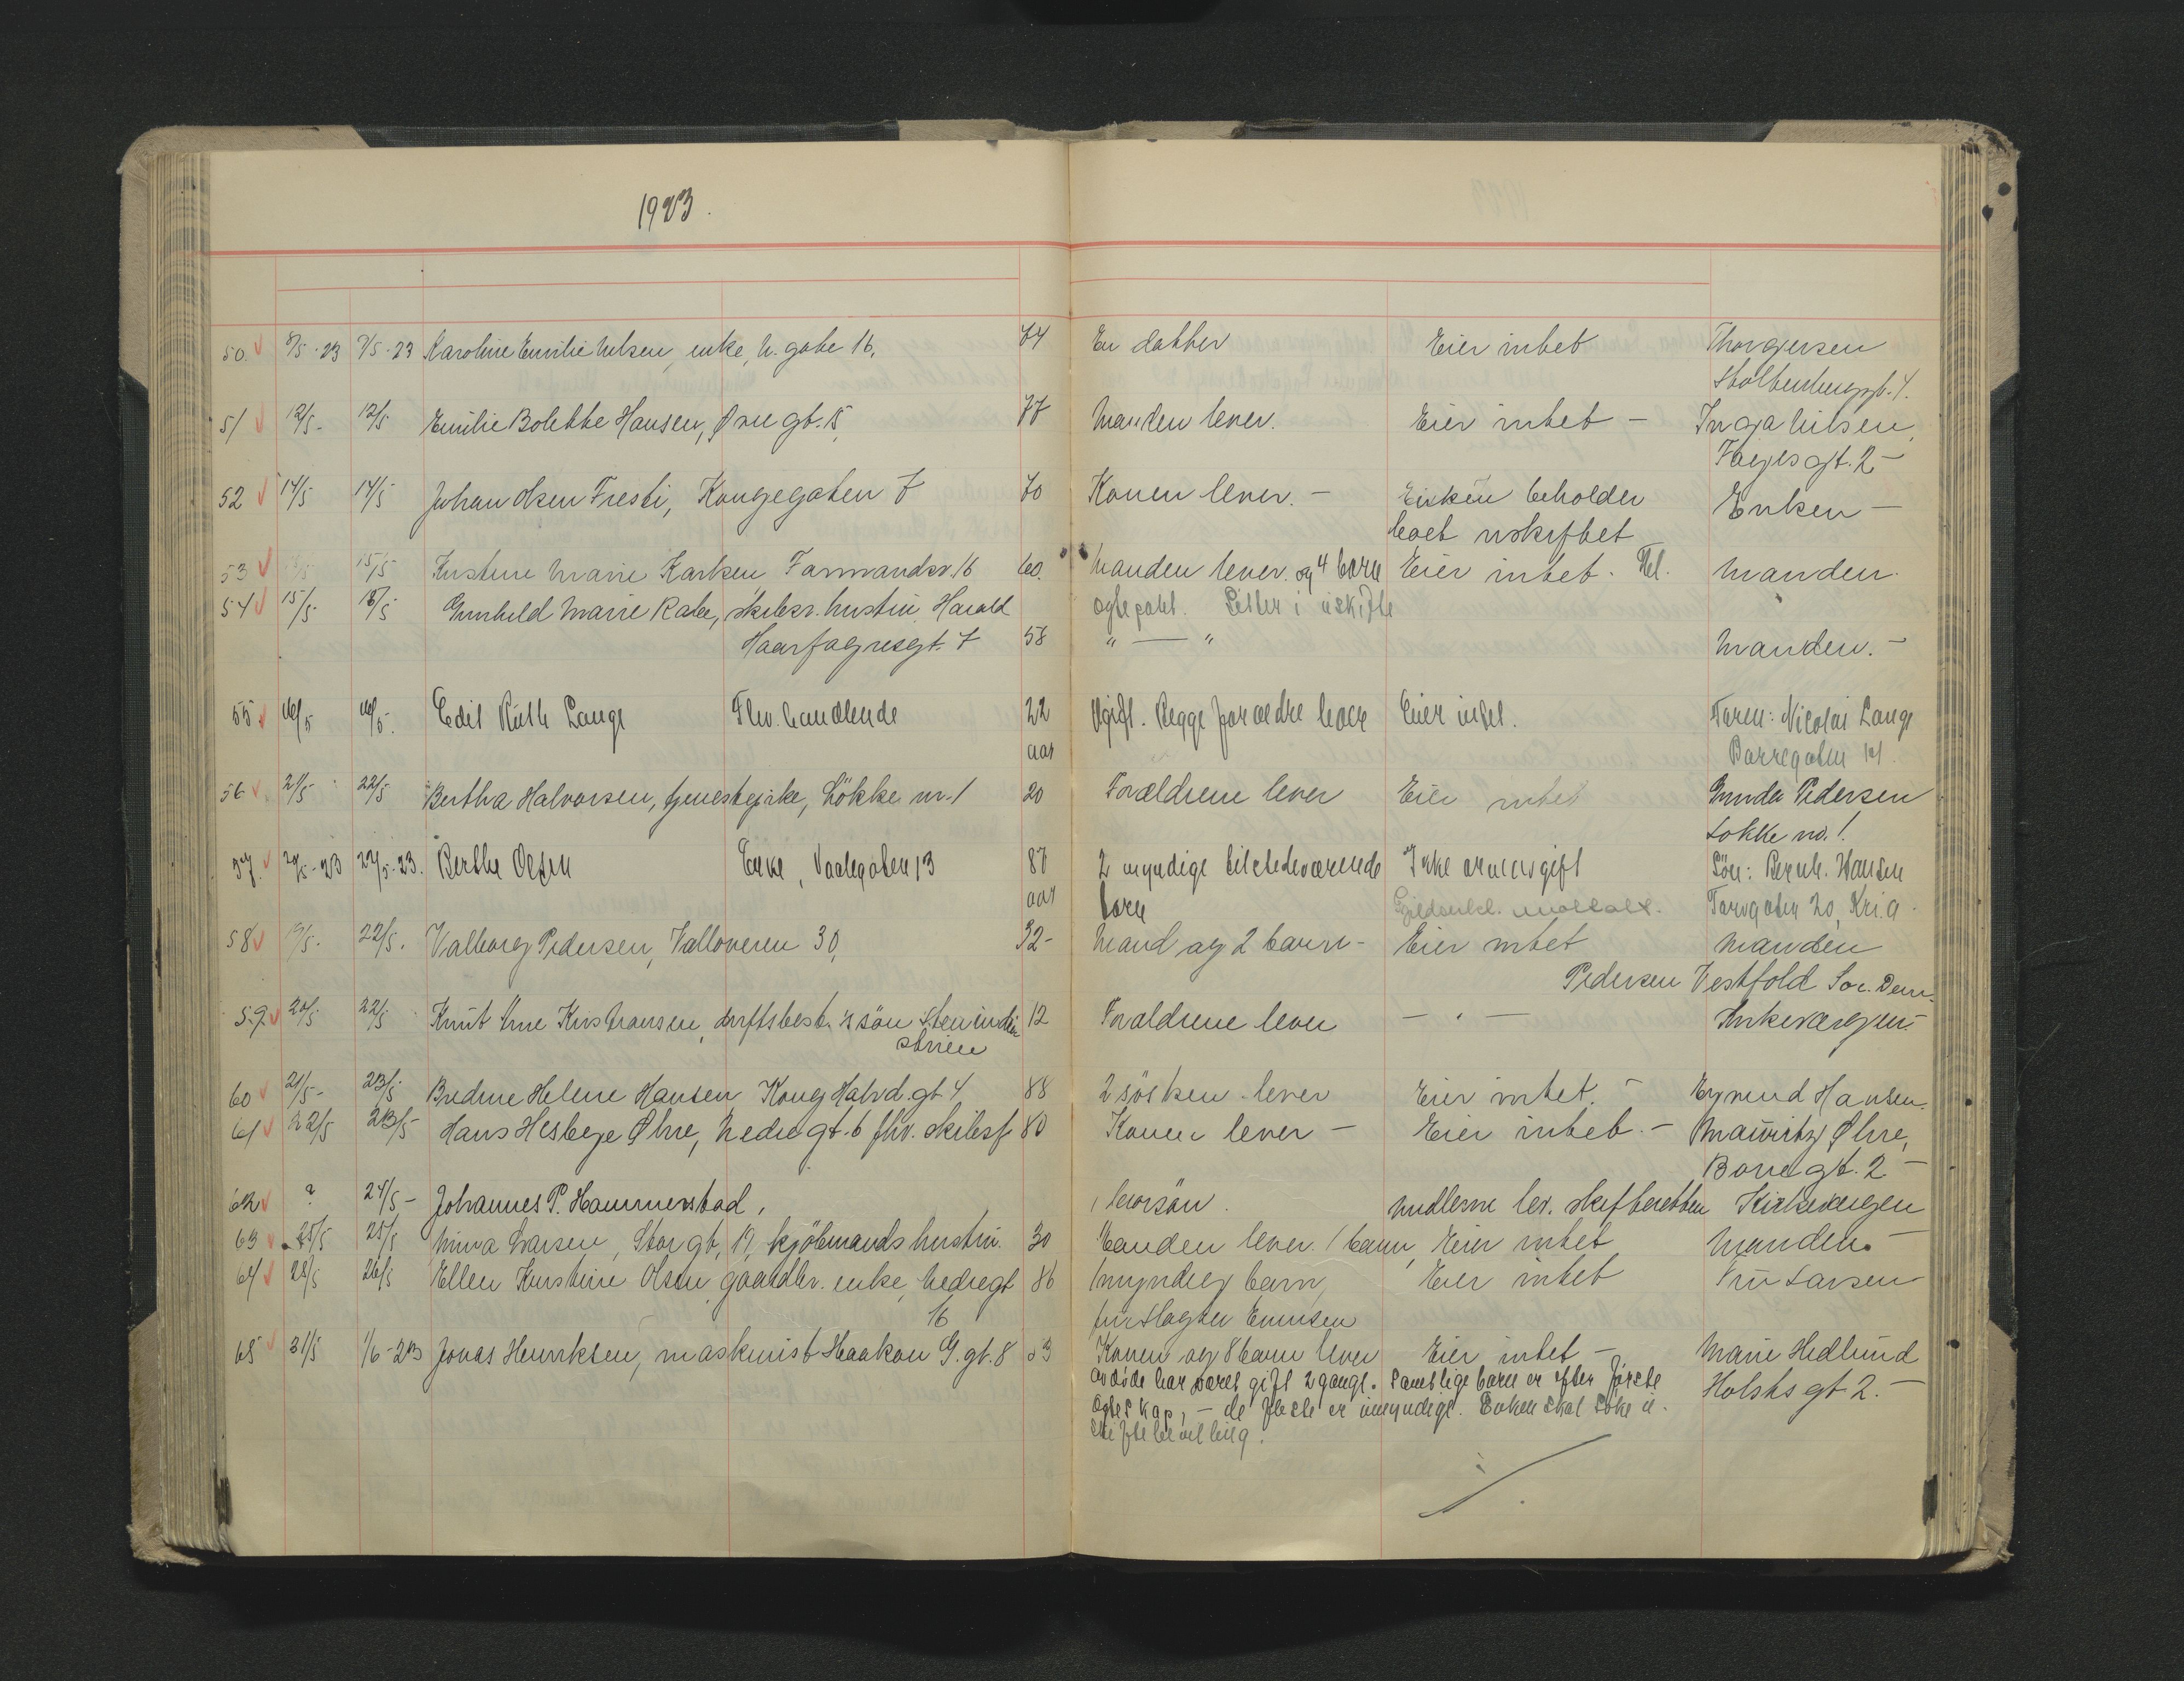 1923.
50. 8/5-23 9/5-23 Karoline Emilie Nilsen, enke, N. gate 16, 74 En datter Eier intet Thorgersen
Stoltenberggt. 4.
51 12/5- 12/5 Emilie Bolette Hansen, Øvregt. 15, 77 Manden lever. Eier intet - Inga Nilsen,
Faygsgt. 2 -
52 14/5 14/5 Johan Olsen Tresti, Kongegaten 7 70 Konen lever. - Enken beholder Enken -
boet uskiftet
53 15/5 Kristine Marie Karlsen Farmandsv. 16 60. Manden lever. og 4 barn Eier intet. Manden.
54 15/5 18/5 Gunhild Marie Rabe, skibsr. hustru, Harald egtepakt. Sitter i uskifte
Haarfagresgt. 7 58 " — " Manden. -
55. 16/5 16/5. Edit Ruth Lange Fhv. handlende 22 Ugift. Begge foraeldre lever Eier intet. Faren: Nicolai Lange
aar Borregaten 14.
56 21/5 22/5 Bertha Halvorsen, tjenestepike, Løkke nr. 1 20 Forældrene lever Eier intet Gunda Pedersen
Løkke no. 1.
57. 22/5-23 22/5-23. Berthe Olsen Enke, Vaalegaten 13 87 2 myndige tilstedeværende Ikke arveavgift Sön: Bernh. Hansen
aar barn Gjeldserkl. mottatt. Torvgaten 20, Kr.i.a.
58 19/5. 22/5. Valborg Pedersen, Valloveien 30, 32- Mand og 2 barn - Eier intet Manden
Pedersen Vestfold Soc. Dem.
59. 20/5 22/5 Knut Une Kristiansen, driftsbest. 's sön Stenindu 12 Forældrene lever — " — Kirkevergen -
strien
60 21/5- 23/5 Bredine Helene Hansen Kong Halvd. gt 4, 88 2 søsken lever Eier intet. - Eymund Hansen.
61 22/5 23/5- Hans Hesberge Øhre, Nedregt. 6 fhv. skibsf 80 Konen lever - Eier intet. - Mauritz Øhre,
Borregt. 2 -
62 ? 24/5- Johannes P. Hammerstad, 1 brorsøn. Midlerne lev. skifteretten Kirkevergen
63 25/5 25/5 Minna Larsen, Storgt, 17, kjöbmands hustru. 30 Manden lever. 1 barn, Eier intet Manden. -
64 25/5 26/5 Ellen Kirstine Olsen, gaardbr. enke, Nedregt 86 1 myndig barn, Eier intet Fru Larsen
16 fru slagter Evensen
65 31/5 1/6-23 Jonas Henriksen, maskinist Haakon G. gt. 8 53 Konen og 8 barn lever Eier intet - Marie Hedlund
Avdøde har været gift 2 gange. Samtlige barn er efter første Holsts gt 2. -
egteskap, - de fleste er umyndige. Enken skal søke u-
skiftebevilling.